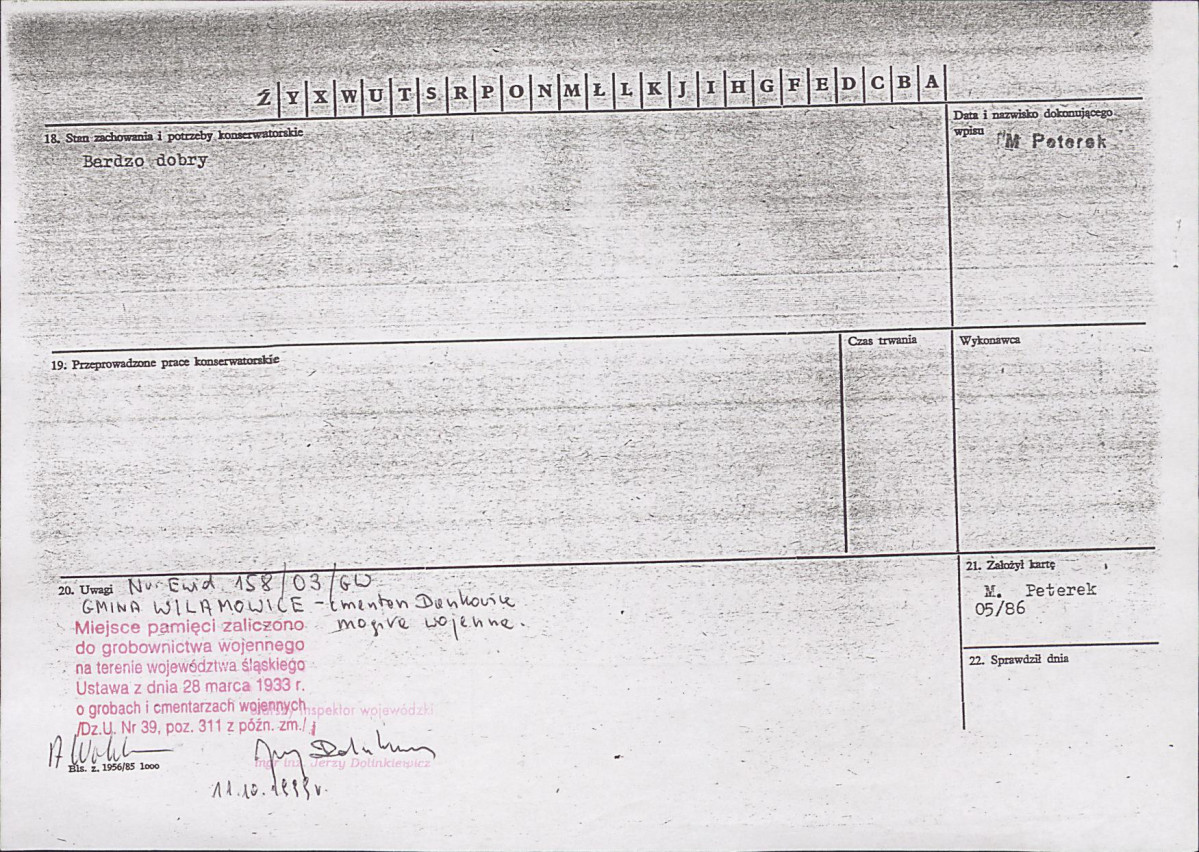 Ż Y X W U T S R P O N M Ł L K J I H G F E D C B A
18. Stan zachowania i potrzeby konserwatorskie
Bardzo dobry
Data i nazwisko dokonującego
wpisu
M Peterek
19. Przeprowadzone prace konserwatorskie
Czas trwania
Wykonawca
20. Uwagi Nr Ewid 158/03/GW
GMINA WILAMOWICE - cmentarz Dankowice
mogiła wojenna.
Miejsce pamięci zaliczono
do grobownictwa wojennego
na terenie województwa śląskiego
Ustawa z dnia 28 marca 1933 r.
o grobach i cmentarzach wojennych
/Dz.U. Nr 39, poz. 311 z późn. zm./
inspektor wojewódzki
mgr inż. Jerzy Dolinkiewicz
11.10.1999r.
Bls. z. 1956/85 1000
21. Założył kartę
M. Peterek
05/86
22. Sprawdził dnia